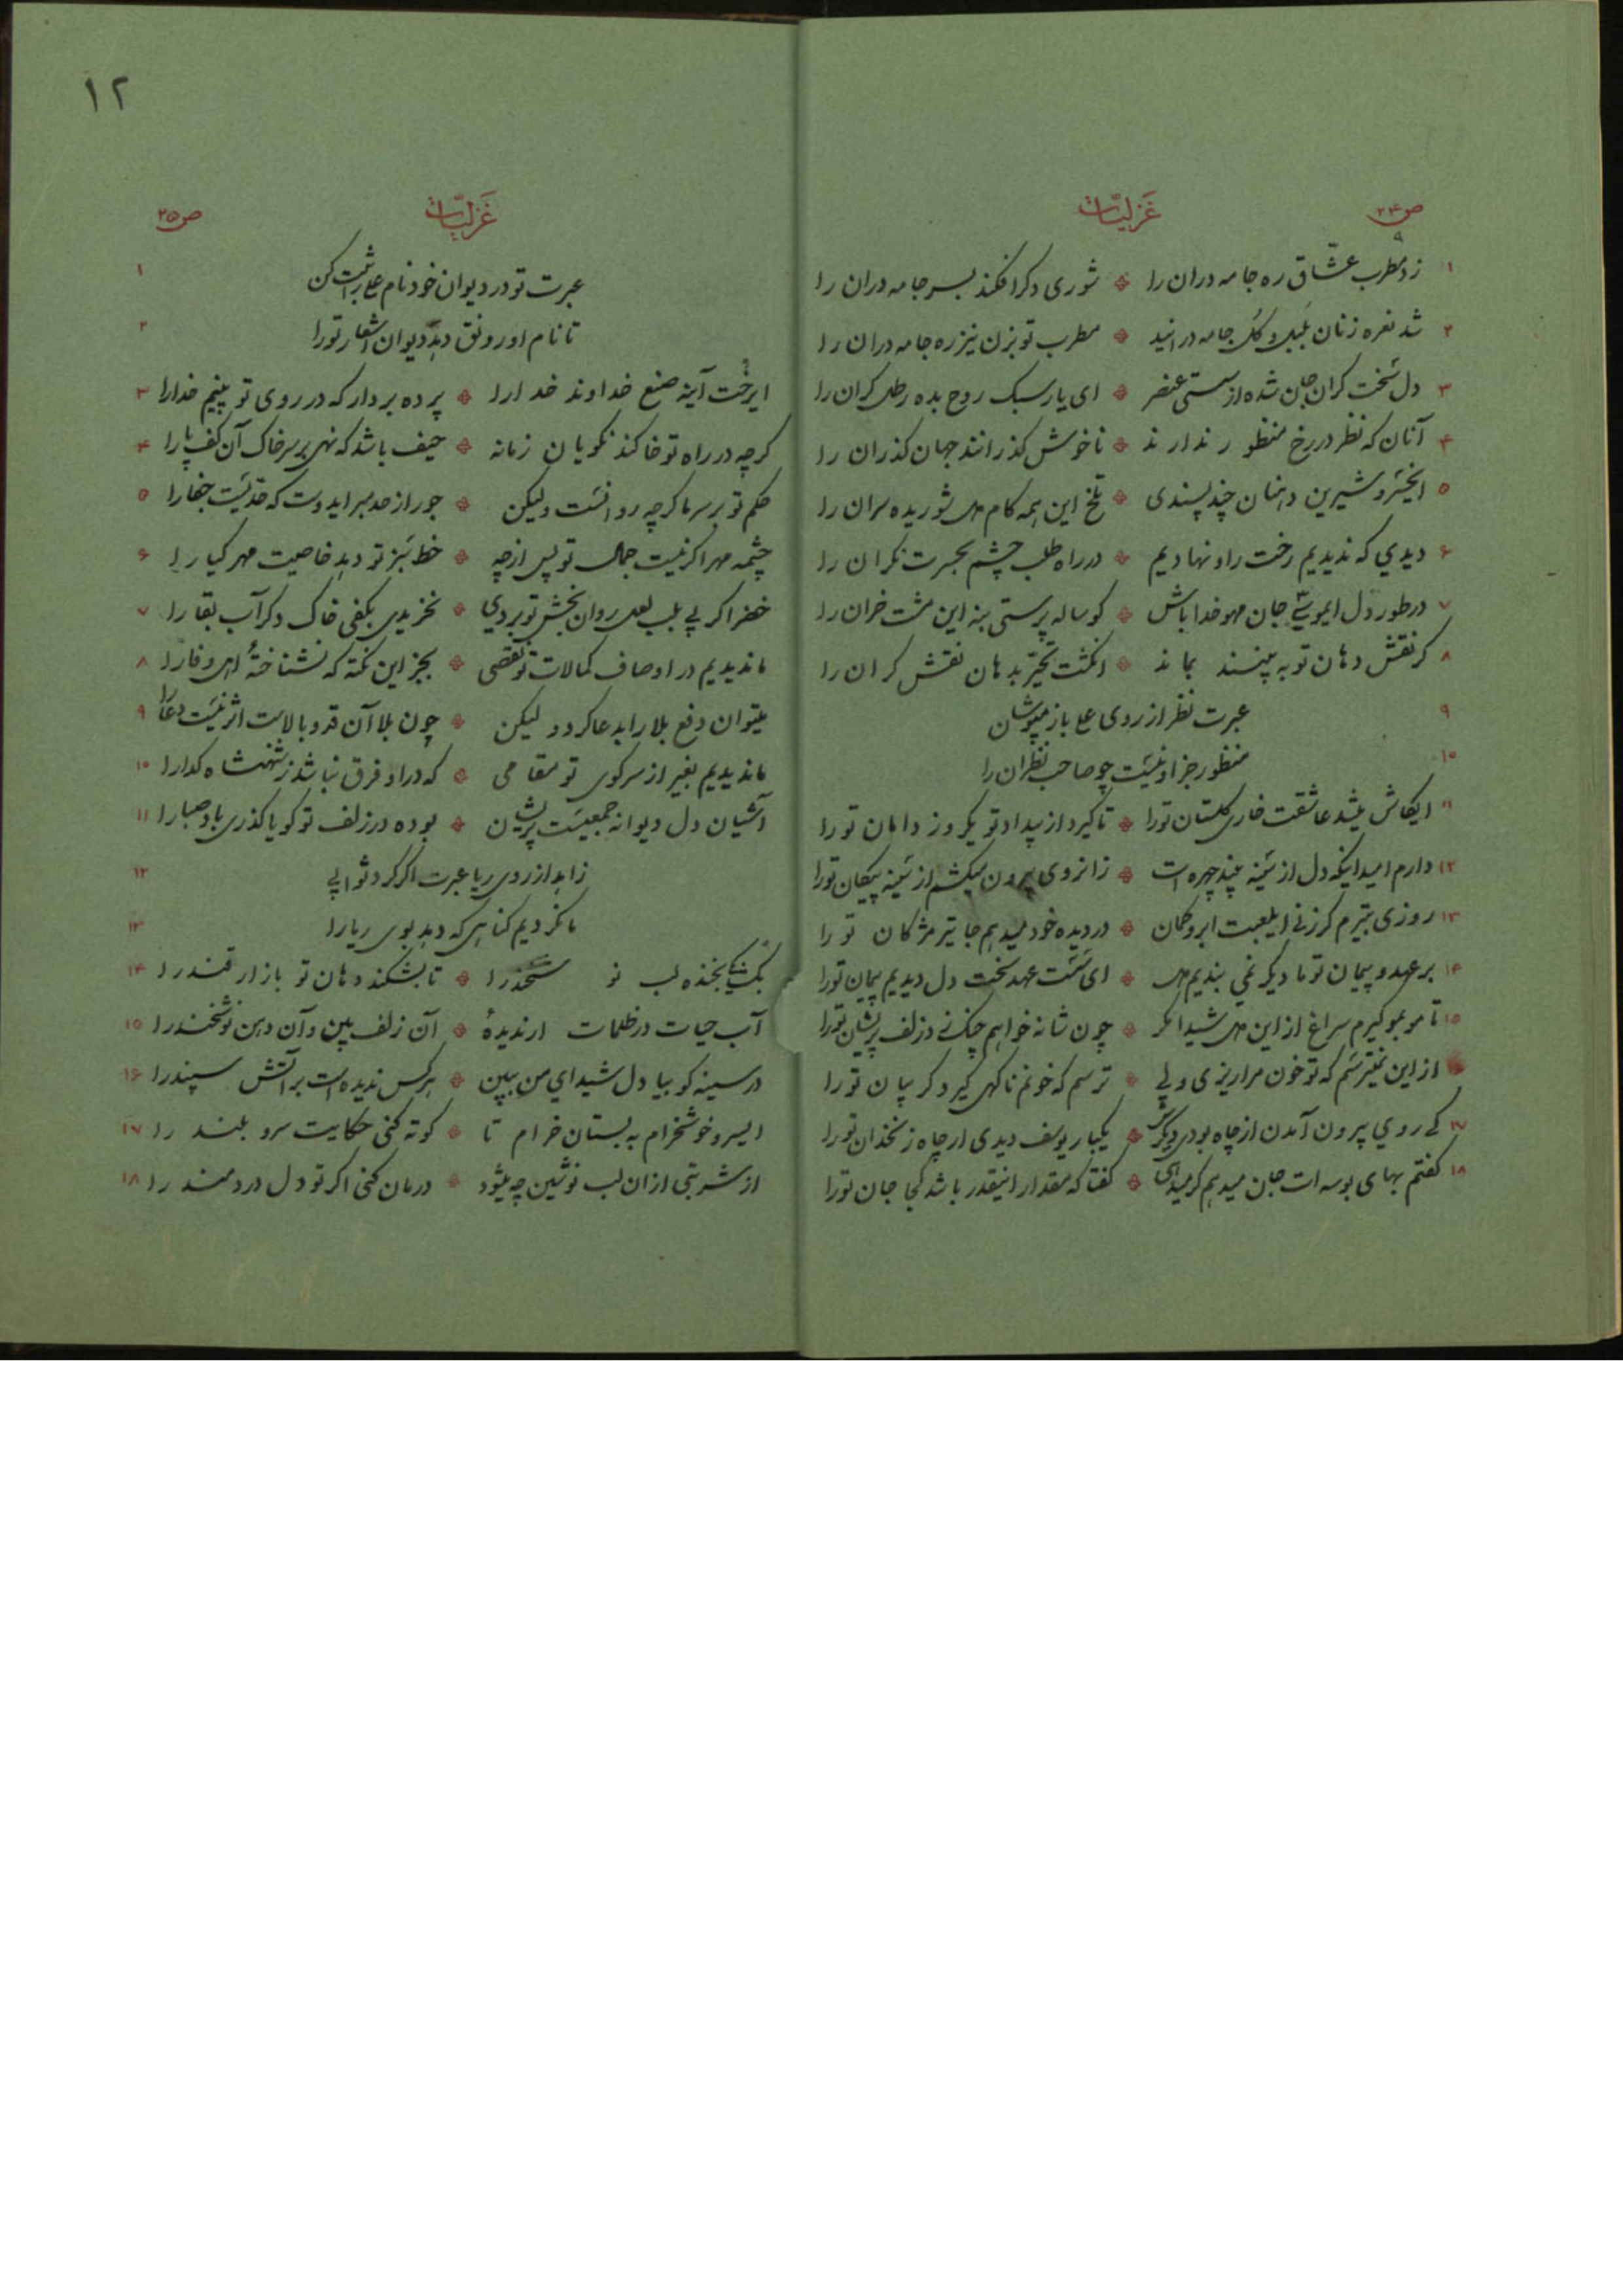 ص۲۴
غزلیّات
۱ زد مطرب عشّاق ره جامه دران را ٭ شوری دگر افکند بسر جامه دران را
۲ شد نعره زنان بلبل و گل جامه درانید ٭ مطرب تو بزن نیز ره جامه دران را
۳ دل سخت گران جان شده از سستی عنصر ٭ ای یار سبک روح بده رطل گران را
۴ آنان که نظر در رخ منظور ندارند ٭ ناخوش گذرانند جهان گذران را
۵ ایخسرو شیرین دهنان چند پسندی ٭ تلخ این همه کام دل شوریده سران را
۶ دیدی که ندیدیم رخت را و نهادیم ٭ در راه طلب چشم بحسرت نگران را
۷ در طور دل ایموسی جان محو خدا باش ٭ گوساله پرستی بنه این مشت خران را
۸ گر نقش دهان تو به بینند بماند ٭ انگشت تحیّر بدهان نقش گران را
۹ عبرت نظر از روی علی باز مپوشان
۱۰ منظور جز او نیست چو صاحب نظران را
۱۱ ایکاش میشد عاشقت خاری گلستان تورا ٭ تا گیرد از بیداد تو یکروز دامان تورا
۱۲ دارم امید اینکه دل از سینه بیند چهره ات ٭ زانروی بیرون میکشم از سینه پیکان تورا
۱۳ روزی بتیرم گر زنی ایلعبت ابرو کمان ٭ در دیده خود میدهم جا تیر مژکان تو را
۱۴ بر عهد و پیمان تو ما دیگر نمی بندیم دل ٭ ای سست عهد سخت دل دیدیم پیمان تورا
۱۵ تا مو بمو گیرم سراغ از این دل شیدا مگر ٭ چون شانه خواهم چنگ زنم در زلف پریشان تورا
از این نمیترسم که تو خون مرا ریزی ولی ٭ ترسم که خونم ناگهی گیرد گریبان تو را
۱۷ کی روی بیرون آمدن از چاه بودی دیگرش ٭ یکبار یوسف دیدی ار چاه زنخدان تورا
۱۸ گفتم بهای بوسه ات جان میدهم گر میدهی ٭ گفتا که مقدار اینقدر باشد کجا جان تورا
۱۲
غزلیّات
ص۲۵
۱ عبرت تو در دیوان خود نام علی را ثبت کن
۲ تا نام او رونق دهد دیوان اشعار تورا
۳ ایرخت آینه صنع خداوند خدارا ٭ پرده بردار که در روی تو بینیم خدارا
۴ گرچه در راه تو خاکند نکویان زمانه ٭ حیف باشد که نهی بر سر خاک آن کف پارا
۵ حکم تو بر سر ما گرچه روانست ولیکن ٭ جور از حد مبر ایدوست که حدّیست جفارا
۶ چشمه مهر اگر نیست جمال تو پس از چه ٭ خط سبز تو دهد خاصیت مهر گیارا
۷ خضر اگر پی بلب لعل روان بخش تو بردی ٭ نخریدی بکفی خاک دگر آب بقارا
۸ ما ندیدیم در اوصاف کمالات تو نقصی ٭ بجز این نکته که نشناختهٔ اهل وفارا
۹ میتوان دفع بلا را بدعا کرد و لیکن ٭ چون بلا آن قد و بالاست اثر نیست دعا را
۱۰ ما ندیدیم بغیر از سر کوی تو مقامی ٭ که در او فرق نباشد ز شهنشاه گدارا
۱۱ آشیان دل دیوانه جمعیست پریشان ٭ بوده در زلف تو گویا گذری باد صبارا
۱۲ زاهد از روی ریا عبرت اگر کرد ثوابی
۱۳ ما نکردیم گناهی که دهد بوی ریارا
۱۴ بگشای بخنده لب نو شخندرا ٭ تا بشکند دهان تو بازار قندرا
۱۵ آب حیات در ظلمات ار ندیدهٔ ٭ آن زلف بین و آن دهن نوشخندرا
۱۶ در سینه گو بیا دل شیدای من ببین ٭ هر کس ندیده است بر آتش سپندرا
۱۷ ایسرو خوشخرام به بستان خرام تا ٭ کوته کنی حکایت سرو بلند را
۱۸ از شربتی از ان لب نوشین چه میشود ٭ درمان کنی اگر تو دل دردمند را